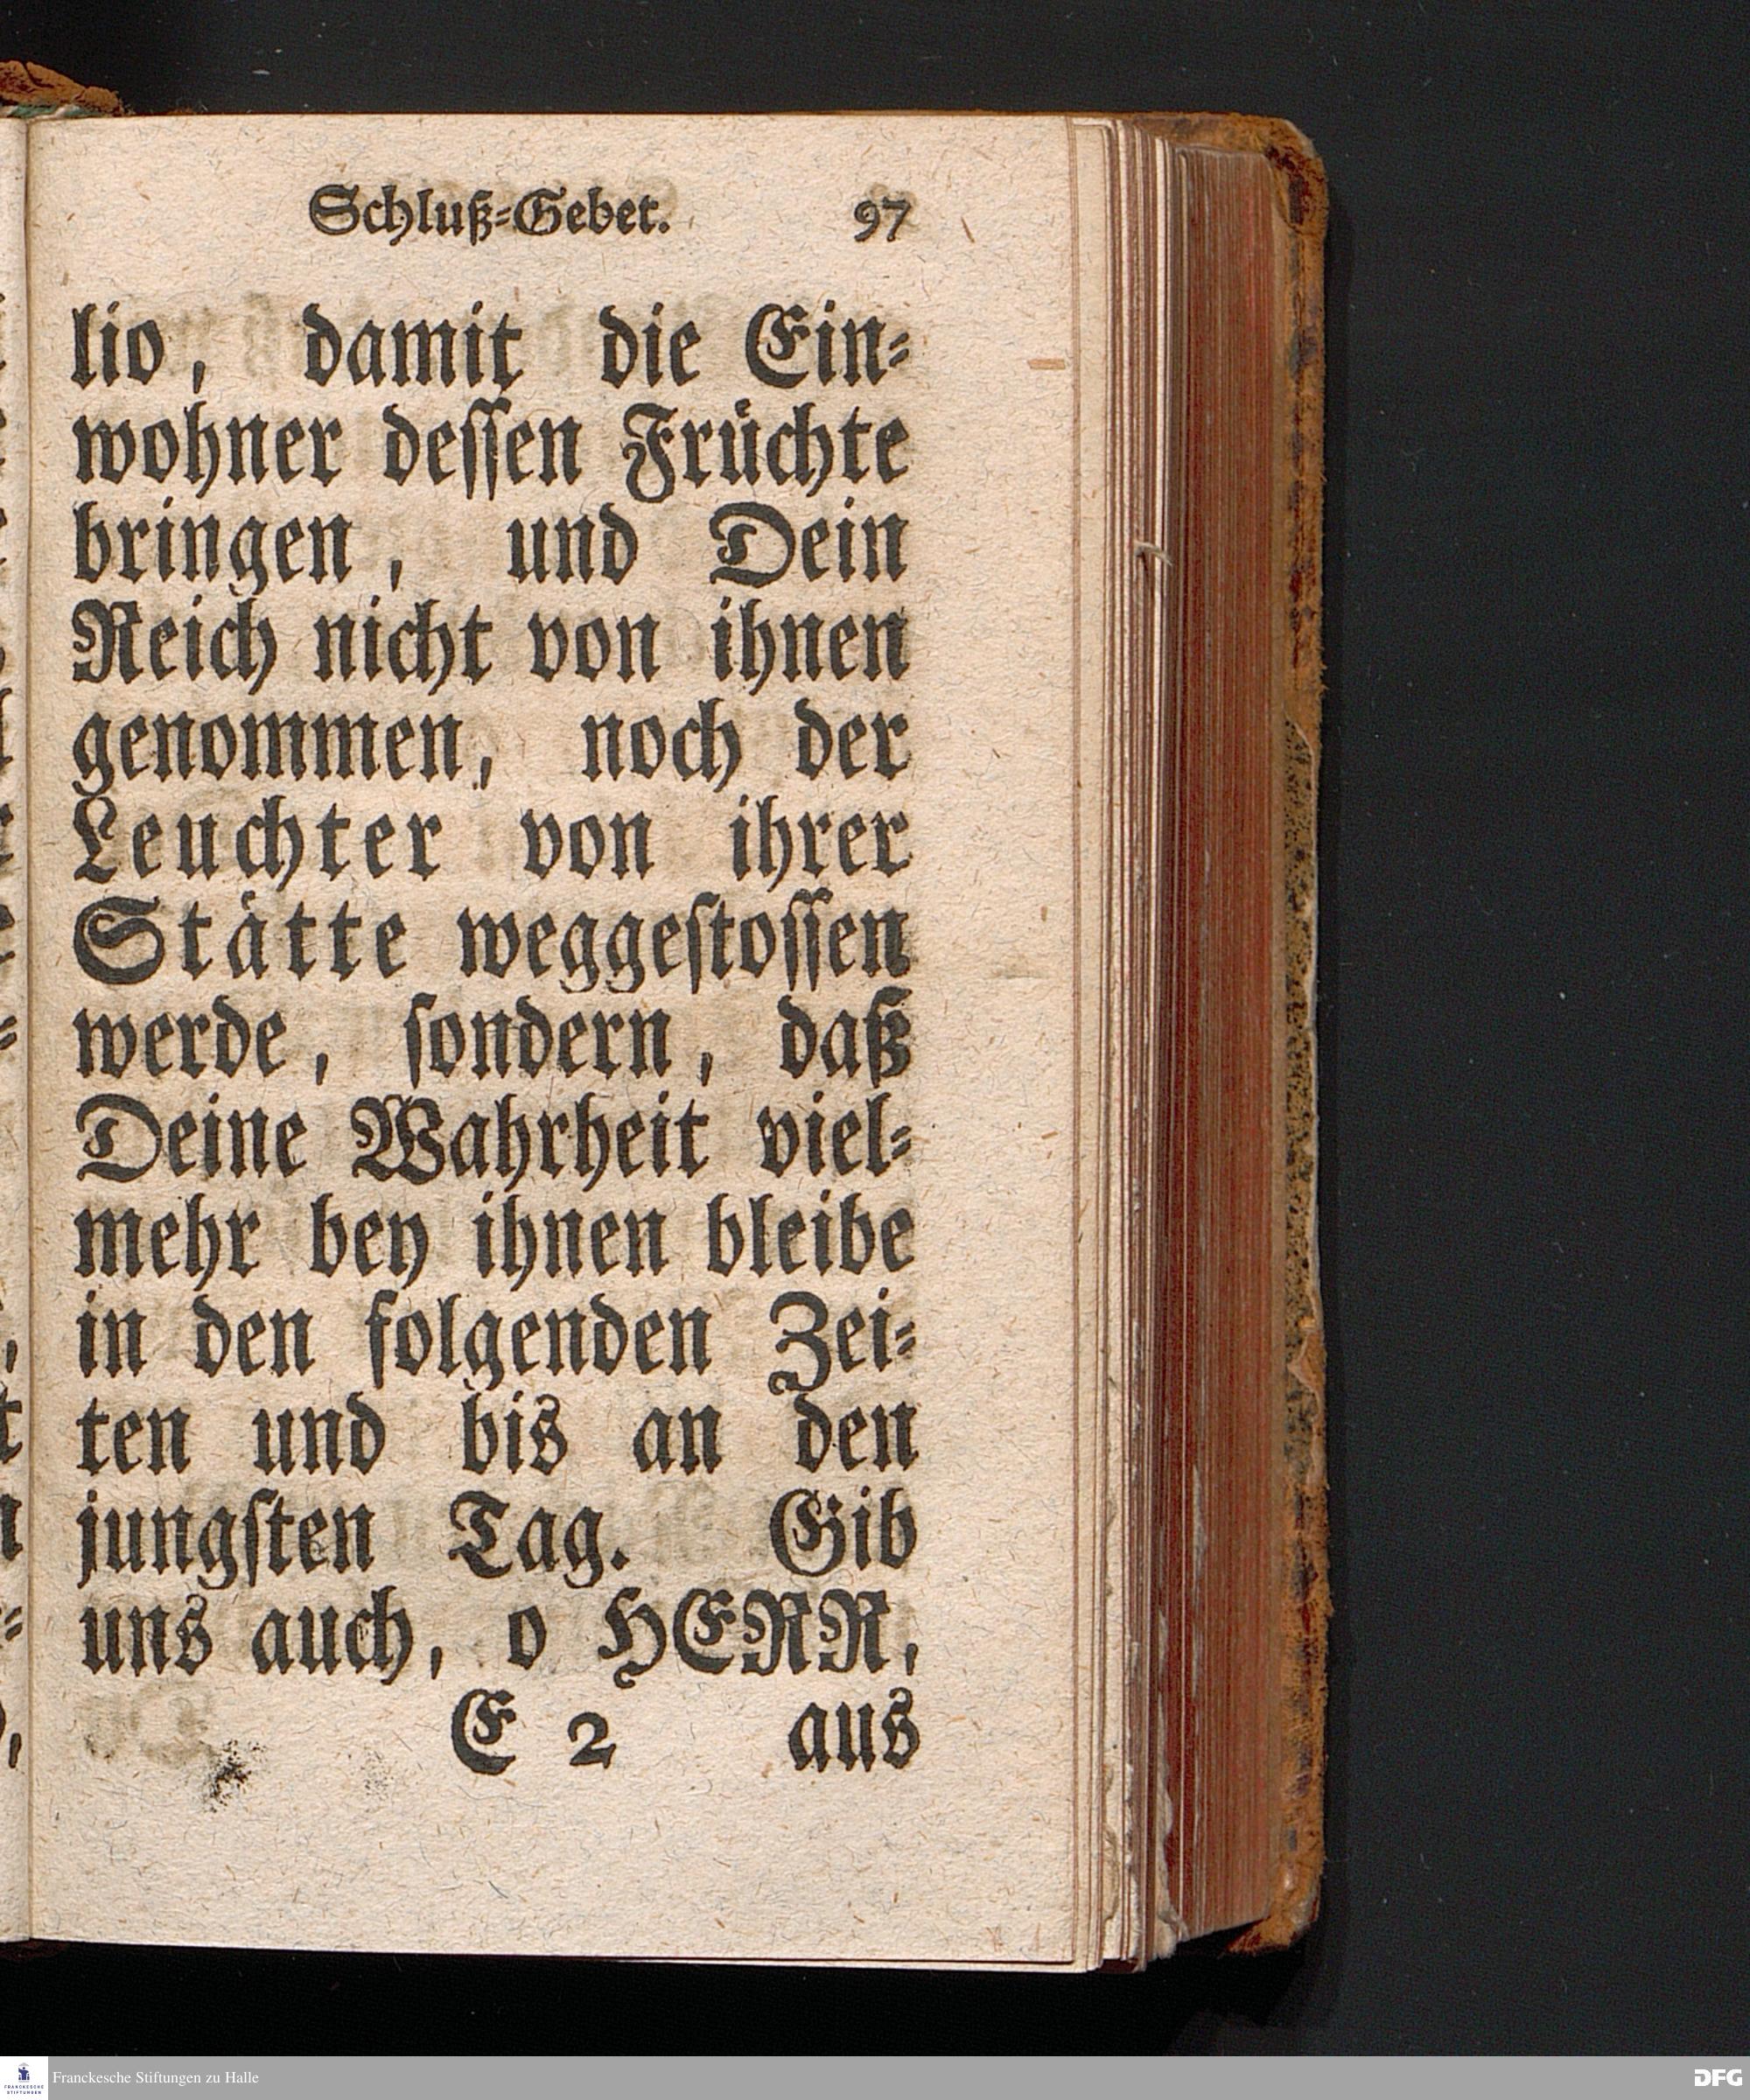 Schluß-Gebet. 97
lio, damit die Ein-
wohner dessen Früchte
bringen, und Dein
Reich nicht von ihnen
genommen, noch der
Leuchter von ihrer
Stätte weggestossen
werde, sondern, daß
Deine Wahrheit viel-
mehr bey ihnen bleibe
in den folgenden Zei-
ten und bis an den
jungsten Tag. Gib
uns auch, o HERR,
E 2 aus
FRANCKESCHE
STIFTUNGEN
Franckesche Stiftungen zu Halle
DFG